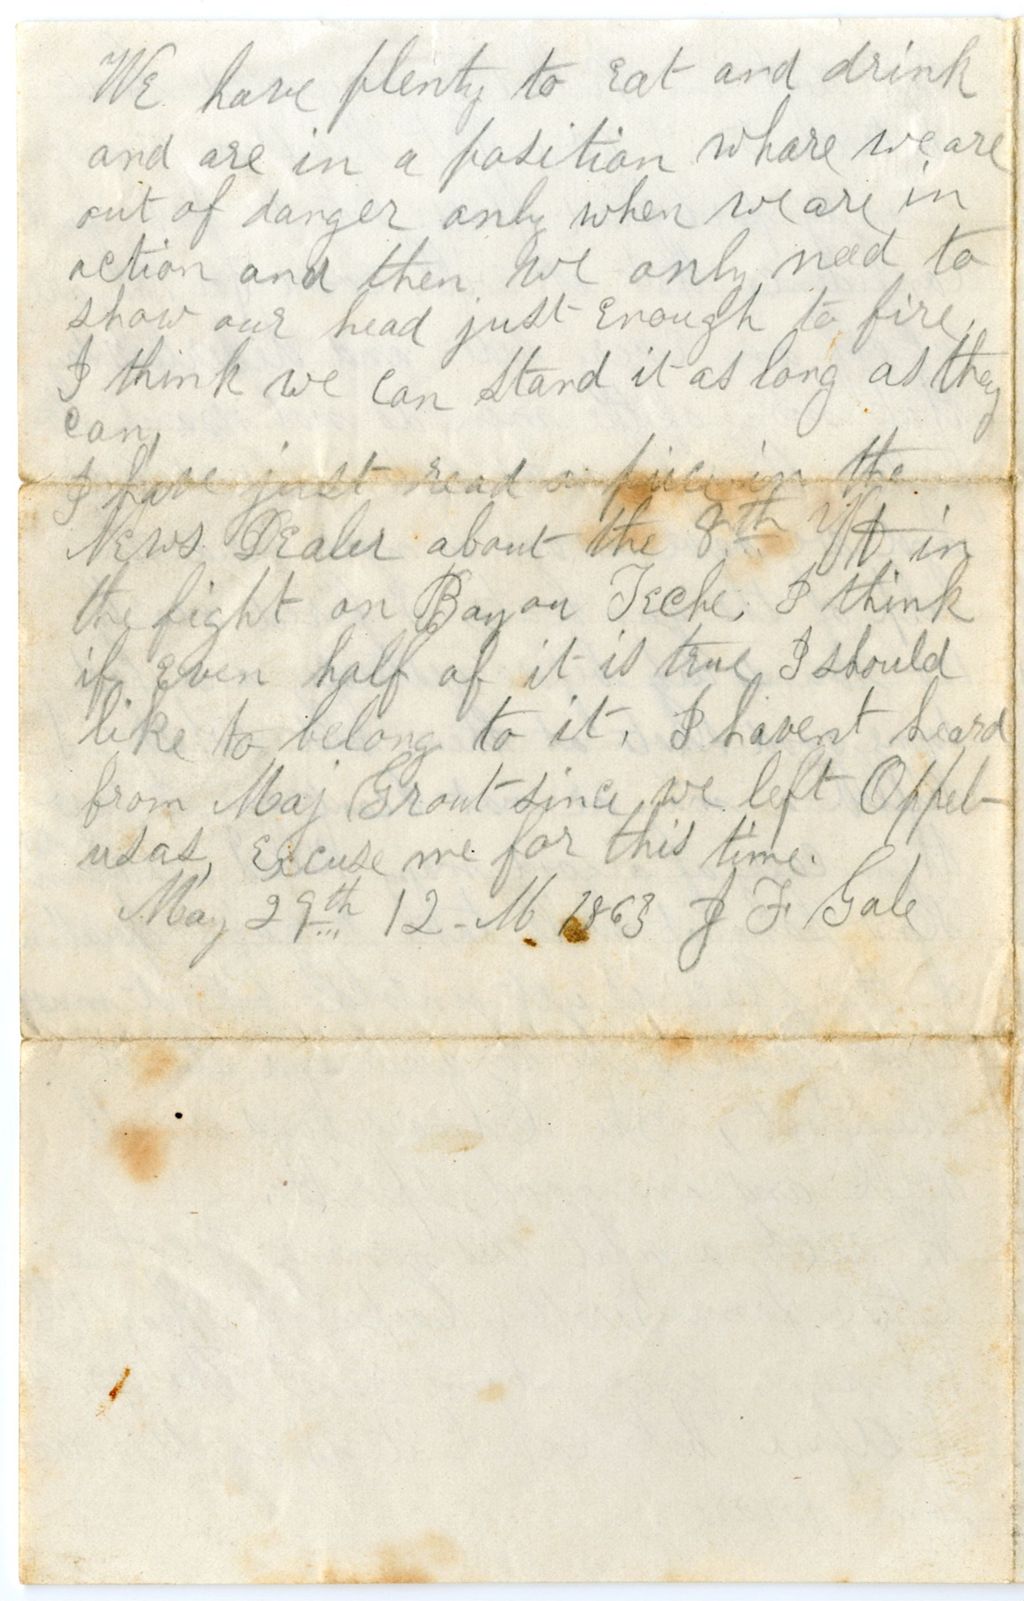 We have plenty to eat and drink
and are in a position whare we are
out of danger only when we are in
action and then we only need to
show our head just enough to fire,
I think we can stand it as long as they
can,
I have just read a piece in the
News Dealer about the 8th Vt in
the fight on Bayou Teche, I think
if even half of it is true I should
like to belong to it, I havent heard
from Maj Grout since we left Oppel-
usas, excuse me for this time.
May 29th 12-M 1863 J F Gale